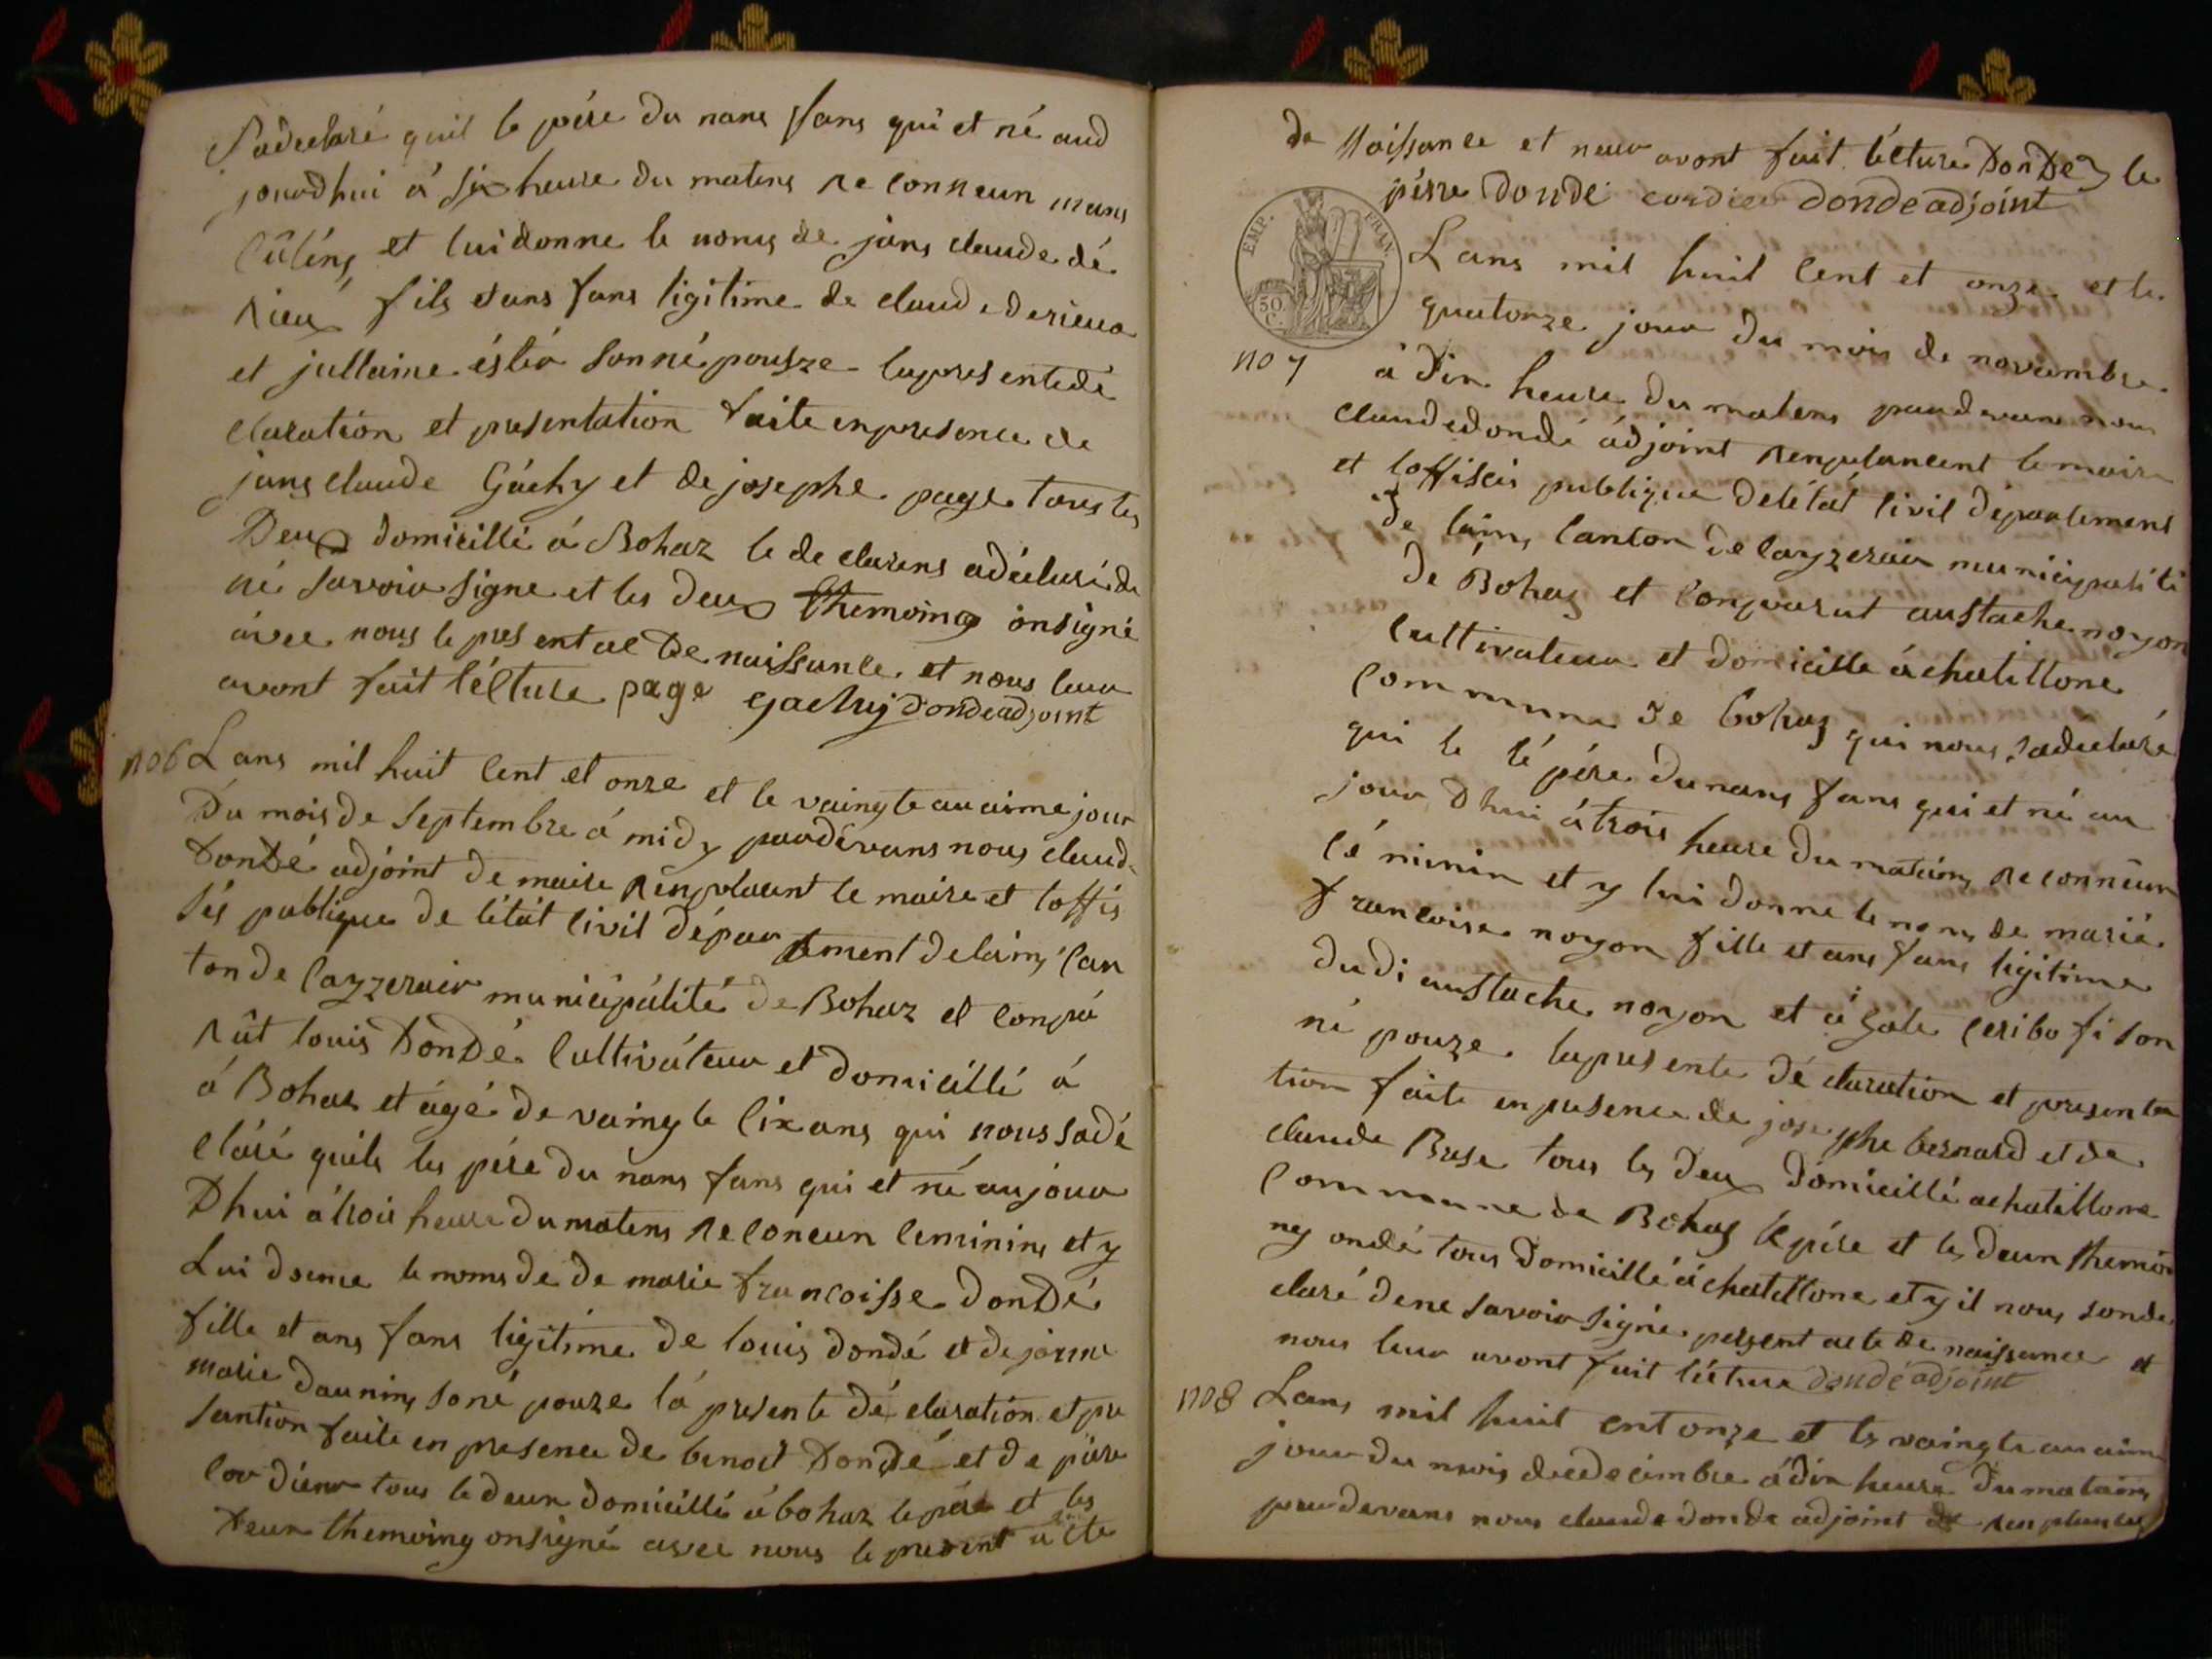 Sadeclaré quil le pére du nans fans qui et né aud
jourdhui á six heure du matens reconneun mans
Cûléns et lui donne le noms de jans claude dé
rieux fils etans fans ligitime de claude derieux
et jullaine ésléo sonnépousze lapresentedé
claration et presentation faite enpresence de
jans claude Gáchy et de josephe page tous les
Deux domicillé á Bohaz le declarens adéclaré de
né savoir signe et les deux themoing onsigné
avec nous le present acte de naissance et nous leur
avont fait lécture page gachuj Dondeadjoint
no6 Lans mil huit cent et onze et le vaingteunaime jour
Du mois de septembre á midy pardevans nous claude
DonDé adjoint de maire renplacent le maire et loffis
siés publique de létát civil département delains can
ton de Cayzeriair municipálité de Bohaz et conpá
rût louis DonDé Cultiváteur et domicillé á
á Bohas et ágé de vaingte six ans qui nous sadé
claré quils les pére du nans fans qui et né aujour
Dhui á trois heure du matens reconeun feminins et y
Lui donne le noms de de marie francoisse donDé
fille et ans fans ligitime de louis dondé et de janne
marie daunins soné pouze lá presente déclaration et pre
santion faite en presence de benoit Dondé et de piére
cordiéer tous le deun domicillé á bohaz le pére et les
Deun themoing onsigné avec nous le present acte
de Naissance et neur avont fait lécture DonDez le
pérre Donde cordier dondeadjoint
EMP. FRAN.
50 C.
Lans mil huil Cent et onze et le
quatorze jour du mois de novembre
no 7 á dix heure du matens pardevans nous
claudedondé ádjoint renpulancent le maire
et loffisiés publique delétát civil département
de lains canton de Cayzeriair municipalité
de Bohaz et Conparut austache noyon
Cultivateur et domicille áchatillone
Commune de bohaz qui nous sadéclaré
qui le lé pére dunans fans qui et né au
jour Dhui á trois heure du matains reconneun
fé minin et y lui donne le noms de marie
francoise noyon fille et ans fans ligitime
dudi austache noyon et ágate cesibo fi son
né pouze lapresente déclaration et presenta
tion faite enpresence de josephe bernard et de
claude Buse tous les deux domicillé achatillone
Commune de Bohaz le pére et les deun themoi
ng ondé tous Domicillé áchatillone et y il nous sonde
claré dene savoir signé persent acte de naissance et
nous leur avont fait lécture dondé adjoint
no8 Lans mil huit centonze et le vaingteunaime
jour du mois dedecimbre ádix heure dumatains
pardevans nous claude donde adjoint de renplances